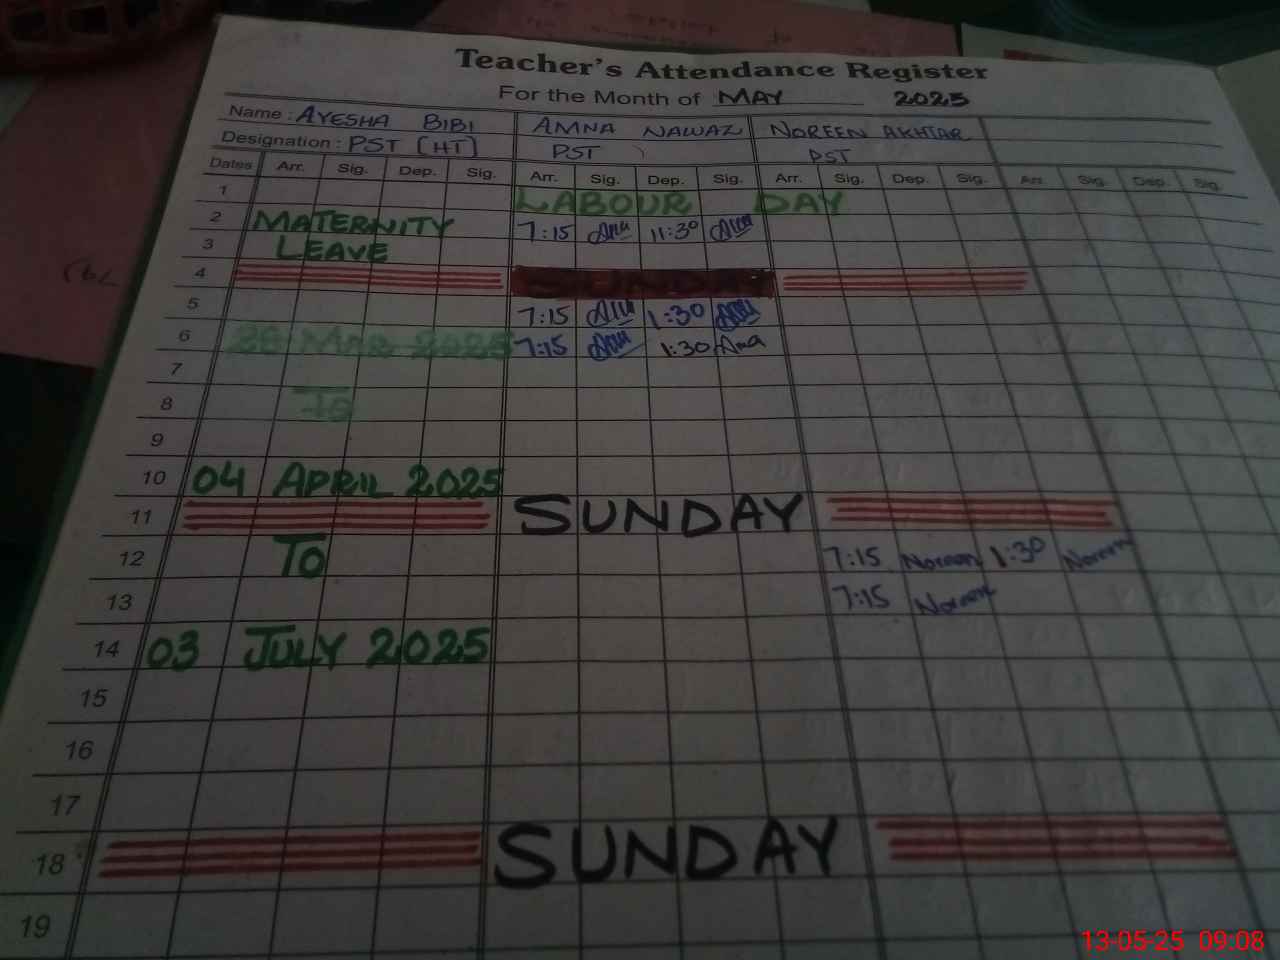 Teacher's Attendance Register
For the Month of MAY 2025
Name : AYESHA BIBI AMNA NAWAZ NOREEN AKHTAR
Designation : PST (HT) PST PST
Dates Arr. Sig. Dep. Sig. Arr. Sig. Dep. Sig. Arr. Sig. Dep. Sig. Arr. Sig. Dep. Sig.
1 LABOUR DAY
2 MATERNITY 7:15 11:30
3 LEAVE
4 SUNDAY
5 7:15 1:30
6 2025 7:15 1:30
7
8 To
9
10 04 APRIL 2025
11 SUNDAY
12 TO 7:15 Noreen 1:30 Noreen
13 7:15 Noreen
14 03 JULY 2025
15
16
17
18 SUNDAY
19
13-05-25 09:08